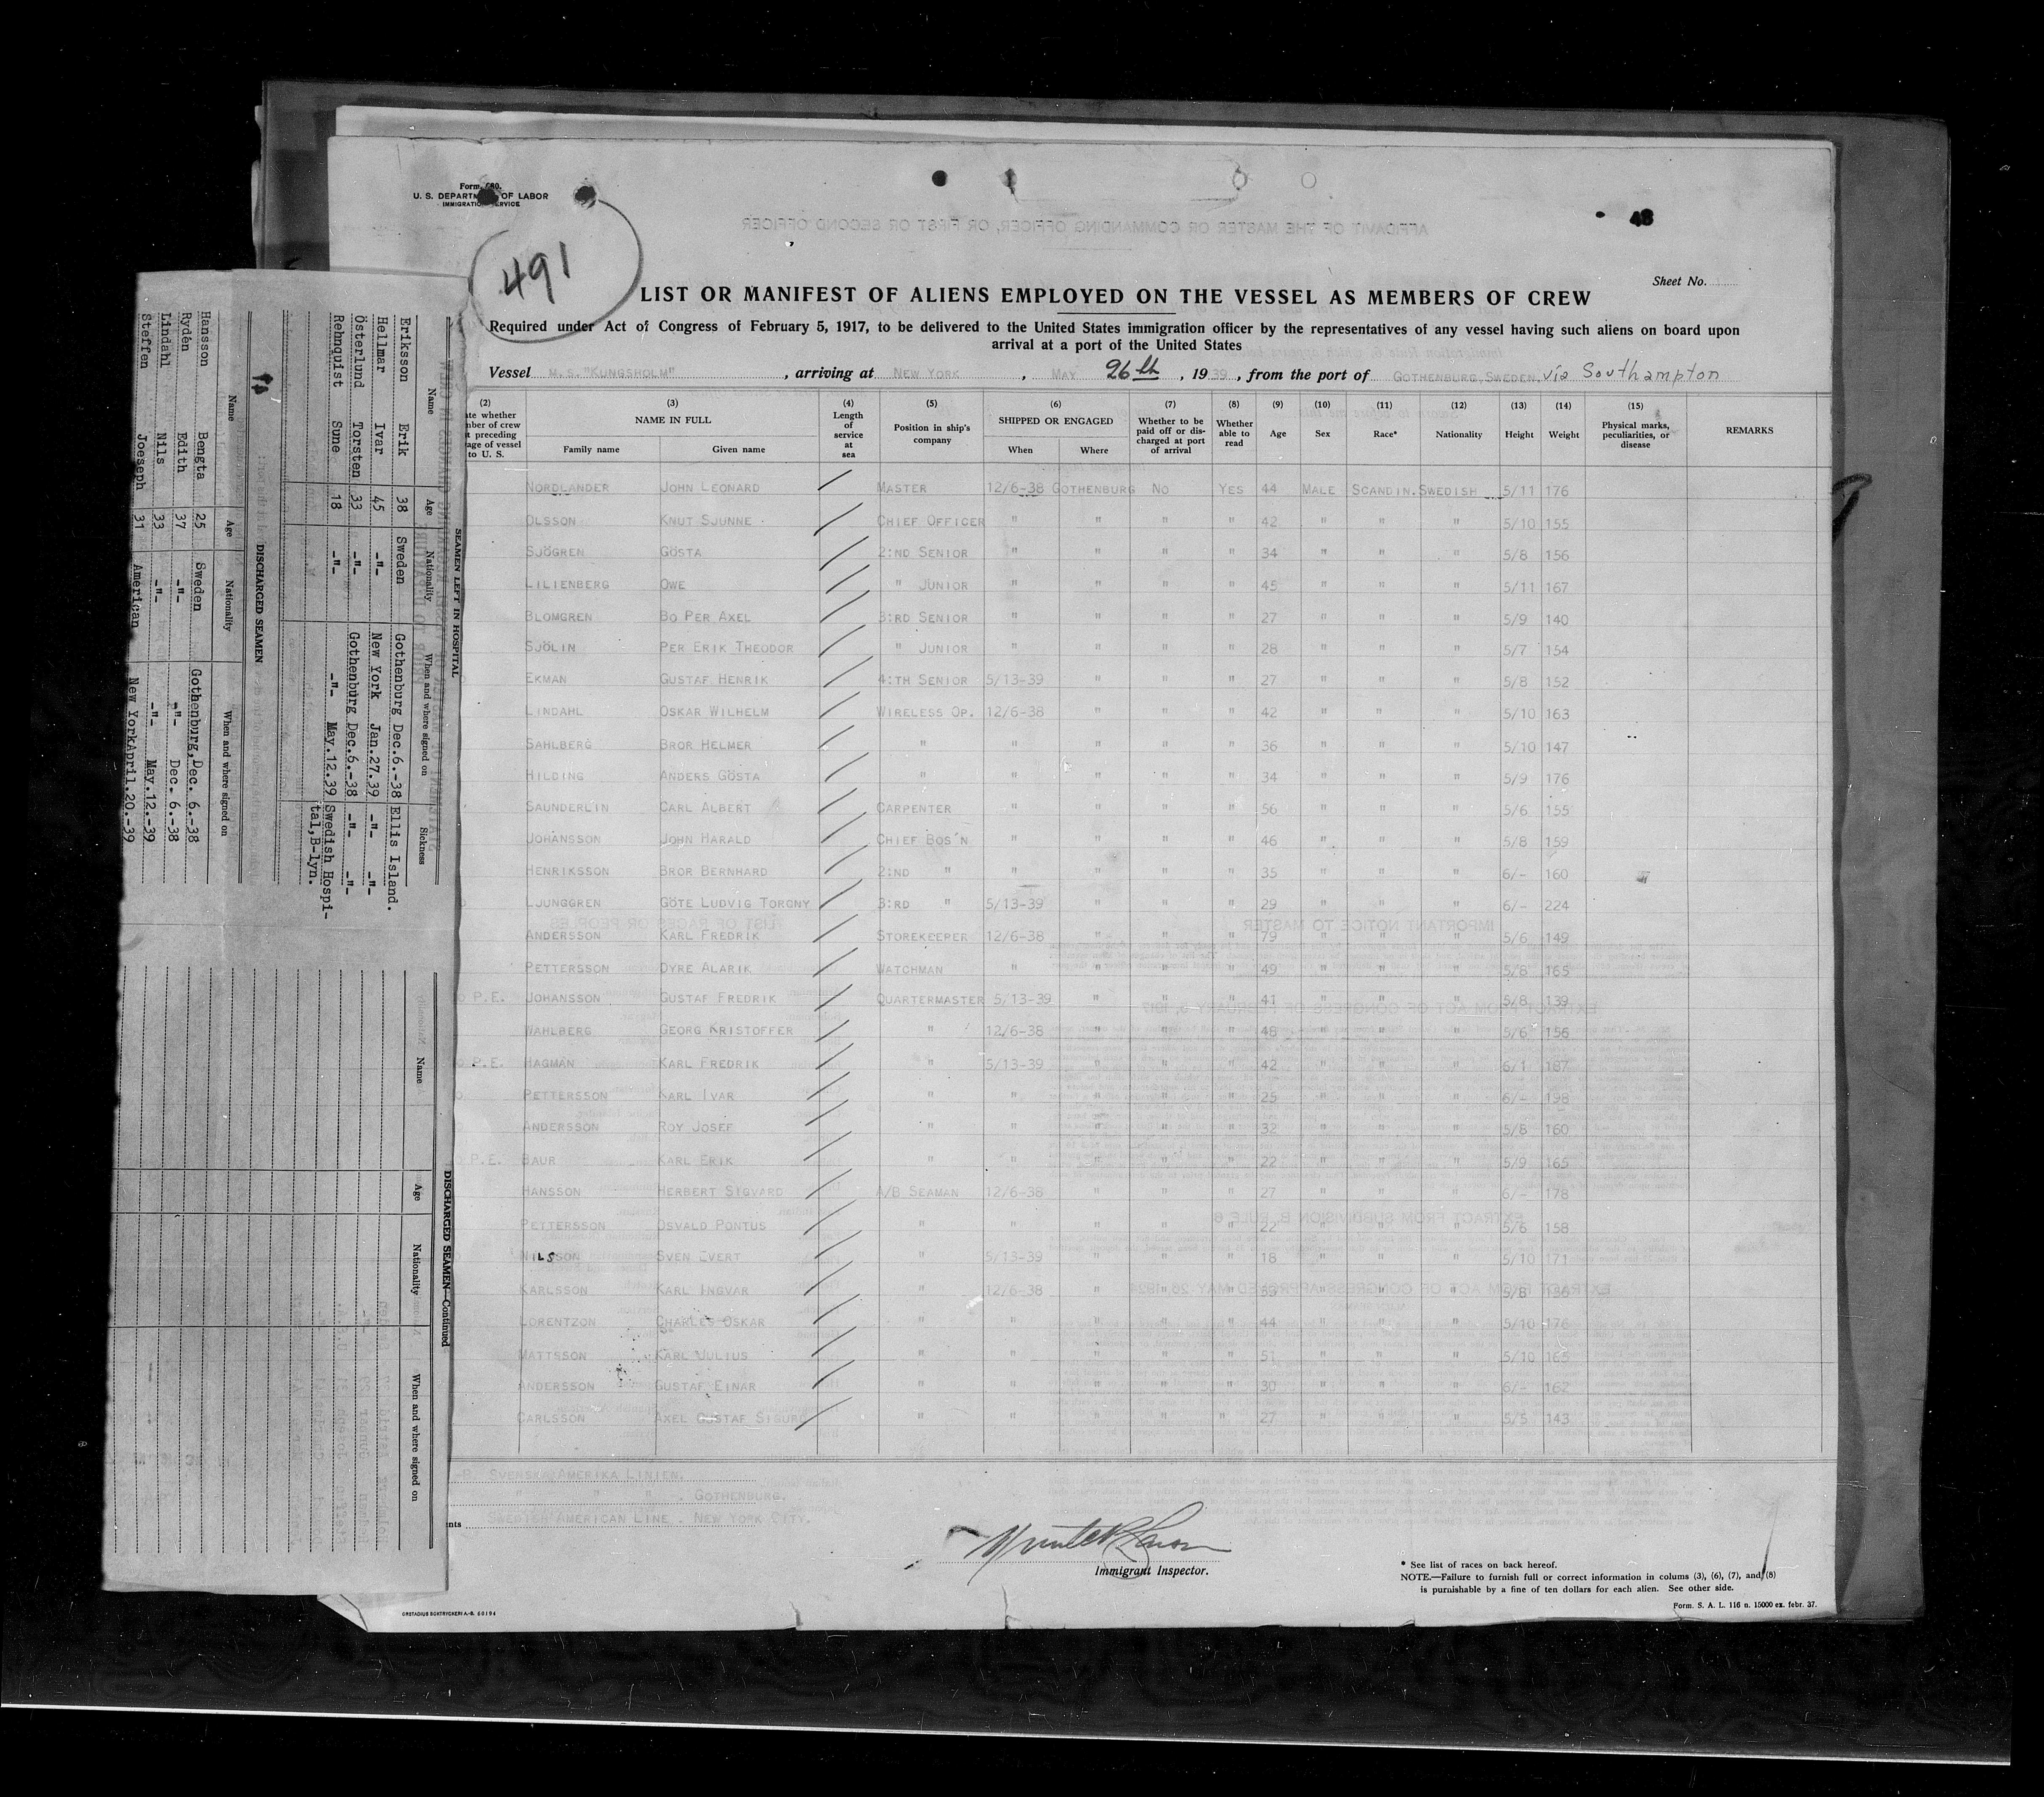 Form 680.
U. S. DEPARTMENT OF LABOR
IMMIGRATION SERVICE
48
491
Sheet No.
LIST OR MANIFEST OF ALIENS EMPLOYED ON THE VESSEL AS MEMBERS OF CREW
Required under Act of Congress of February 5, 1917, to be delivered to the United States immigration officer by the representatives of any vessel having such aliens on board upon
arrival at a port of the United States
Vessel M.S. "KUNGSHOLM", arriving at NEW YORK, MAY 26th, 1939, from the port of GOTHENBURG, SWEDEN, via Southampton
(2) (3) (4) (5) (6) (7) (8) (9) (10) (11) (12) (13) (14) (15)
NAME IN FULL Length of service at sea Position in ship's company SHIPPED OR ENGAGED Whether to be paid off or discharged at port of arrival Whether able to read Age Sex Race* Nationality Height Weight Physical marks, peculiarities, or disease REMARKS
Family name Given name When Where
NORDLANDER JOHN LEONARD MASTER 12/6-38 GOTHENBURG NO YES 44 MALE SCANDIN. SWEDISH 5/11 176
OLSSON KNUT SJUNNE CHIEF OFFICER " " " " 42 " " " 5/10 155
SJÖGREN GÖSTA 2:ND SENIOR " " " " 34 " " " 5/8 156
LILIENBERG OWE " JUNIOR " " " " 45 " " " 5/11 167
BLOMGREN BO PER AXEL 3:RD SENIOR " " " " 27 " " " 5/9 140
SJÖLIN PER ERIK THEODOR " JUNIOR " " " " 28 " " " 5/7 154
EKMAN GUSTAF HENRIK 4:TH SENIOR 5/13-39 " " " 27 " " " 5/8 152
LINDAHL OSKAR WILHELM WIRELESS OP. 12/6-38 " " " 42 " " " 5/10 163
SAHLBERG BROR HELMER " " " " " 36 " " " 5/10 147
HILDING ANDERS GÖSTA " " " " " 34 " " " 5/9 176
SAUNDERLIN CARL ALBERT CARPENTER " " " " 56 " " " 5/6 155
JOHANSSON JOHN HARALD CHIEF BOS'N " " " " 46 " " " 5/8 159
HENRIKSSON BROR BERNHARD 2:ND " " " " " 35 " " " 6/- 160
LJUNGGREN GÖTE LUDVIG TORGNY 3:RD " 5/13-39 " " " 29 " " " 6/- 224
ANDERSSON KARL FREDRIK STOREKEEPER 12/6-38 " " " 79 " " " 5/6 149
PETTERSSON DYRE ALARIK WATCHMAN " " " " 49 " " " 5/8 165
P.E. JOHANSSON GUSTAF FREDRIK QUARTERMASTER 5/13-39 " " " 41 " " " 5/8 139
WAHLBERG GEORG KRISTOFFER " 12/6-38 " " " 48 " " " 5/6 156
P.E. HAGMAN KARL FREDRIK " 5/13-39 " " " 42 " " " 6/1 187
PETTERSSON KARL IVAR " " " " " 25 " " " 6/- 198
ANDERSSON ROY JOSEF " " " " " 32 " " " 5/8 160
P.E. BAUR KARL ERIK " " " " " 22 " " " 5/9 165
HANSSON HERBERT SIGVARD A/B SEAMAN 12/6-38 " " " 27 " " " 6/- 178
PETTERSSON OSVALD PONTUS " " " " " 22 " " " 5/6 158
NILSSON SVEN EVERT " 5/13-39 " " " 18 " " " 5/10 171
KARLSSON KARL INGVAR " 12/6-38 " " " 33 " " " 5/8
LORENTZON CHARLES OSKAR " " " " " 44 " " " 5/10 176
MATTSSON KARL JULIUS " " " " " 51 " " " 5/10 165
ANDERSSON GUSTAF EINAR " " " " " 30 " " " 6/- 162
CARLSSON AXEL GUSTAF SIGURD " " " " " 27 " " " 5/5 143
SVENSKA AMERIKA LINIEN.
" " " . GOTHENBURG.
SWEDISH AMERICAN LINE . NEW YORK CITY.
Immigrant Inspector.
* See list of races on back hereof.
NOTE.—Failure to furnish full or correct information in colums (3), (6), (7), and (8)
is punishable by a fine of ten dollars for each alien. See other side.
Form. S. A. L. 116 n. 15000 ex. febr. 37.
ORSTADIUS BOKTRYCKERI A.-B. 50194
SEAMEN LEFT IN HOSPITAL
Name Age Nationality When and where signed on Sickness
Eriksson Erik 38 Sweden Gothenburg Dec.6.-38 Ellis Island.
Hellmar Ivar 45 -"- New York Jan.27.39 -"-
Österlund Torsten 33 -"- Gothenburg Dec.6.-38 -"-
Rehnquist Sune 18 -"- -"- May.12.39 Swedish Hospi-
tal,B-lyn.
DISCHARGED SEAMEN
Name Age Nationality When and where signed on
Hansson Bengta 25 Sweden Gothenburg,Dec. 6.-38
Rydén Edith 37 -"- -"- Dec. 6.-38
Lindahl Nils 33 -"- -"- May.12.-39
Steffen Joeseph 31 American New YorkApril.20.-39
DISCHARGED SEAMEN—Continued
Name Age Nationality When and where signed on